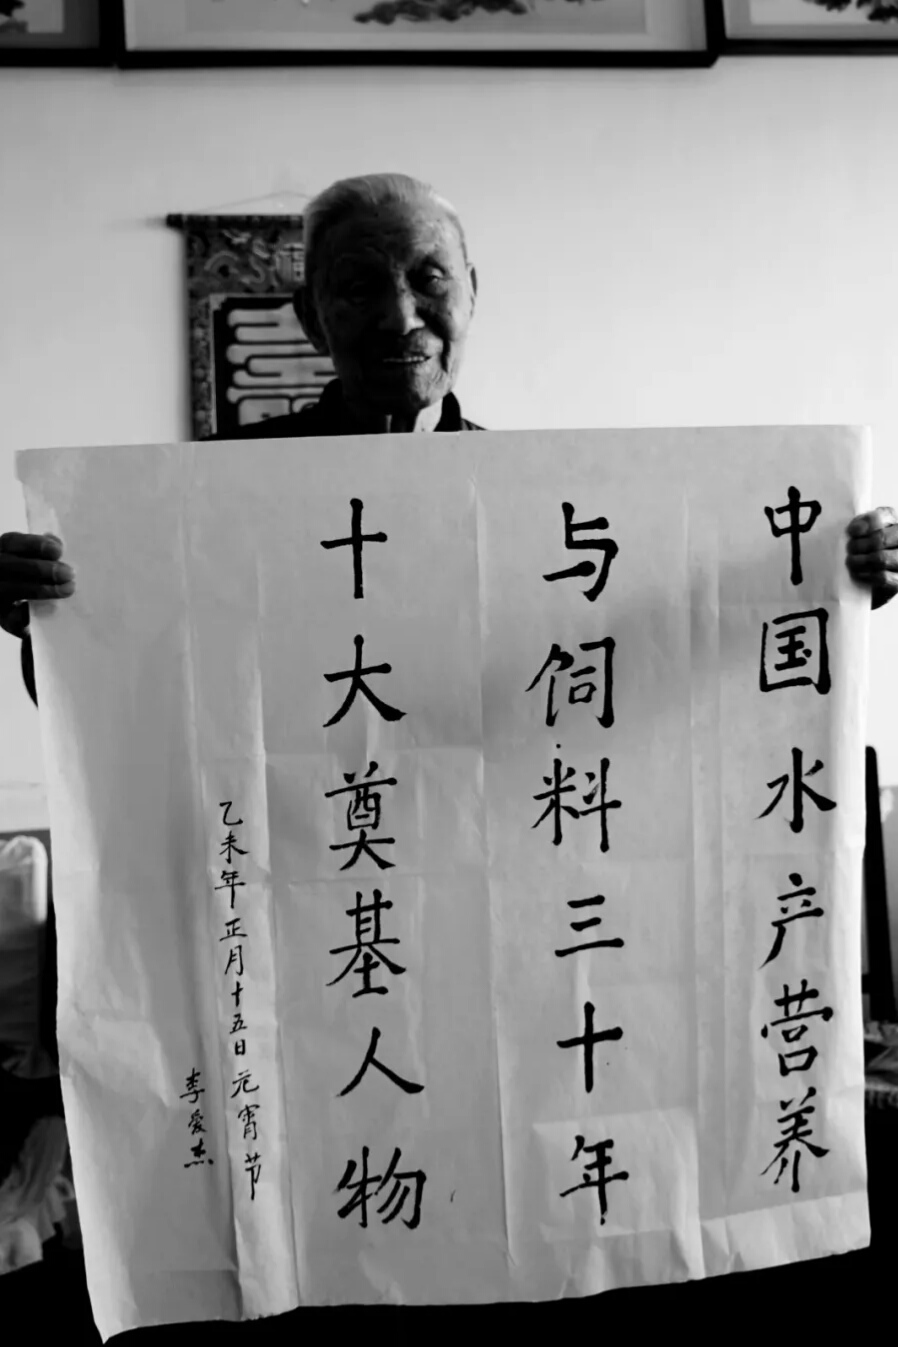 中国水产营养
与饲料三十年
十大奠基人物
乙未年正月十五日元宵节
李爱杰